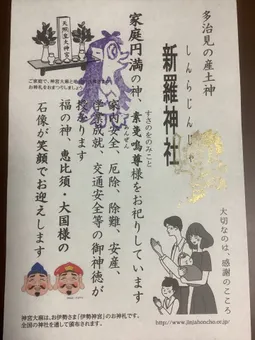 多治見の産土神
しんらじんじゃ
新羅神社
すさのをのみこと
家庭円満の神、素戔嗚尊様をお祀りしています
家内安全、厄除、除難、安産、
成就、交通安全等の御神徳が
ります
福の神、恵比須・大国様の
石像が笑顔でお迎えします
天照皇大神宮
ご家庭で、神宮大麻と
お神札をおまつりしましょう
大切なのは、感謝のこころ
http://www.jinjahoncho.or.jp/
神宮大麻は、お伊勢さま「伊勢神宮」のお神札です。
全国の神社を通して頒布されます。